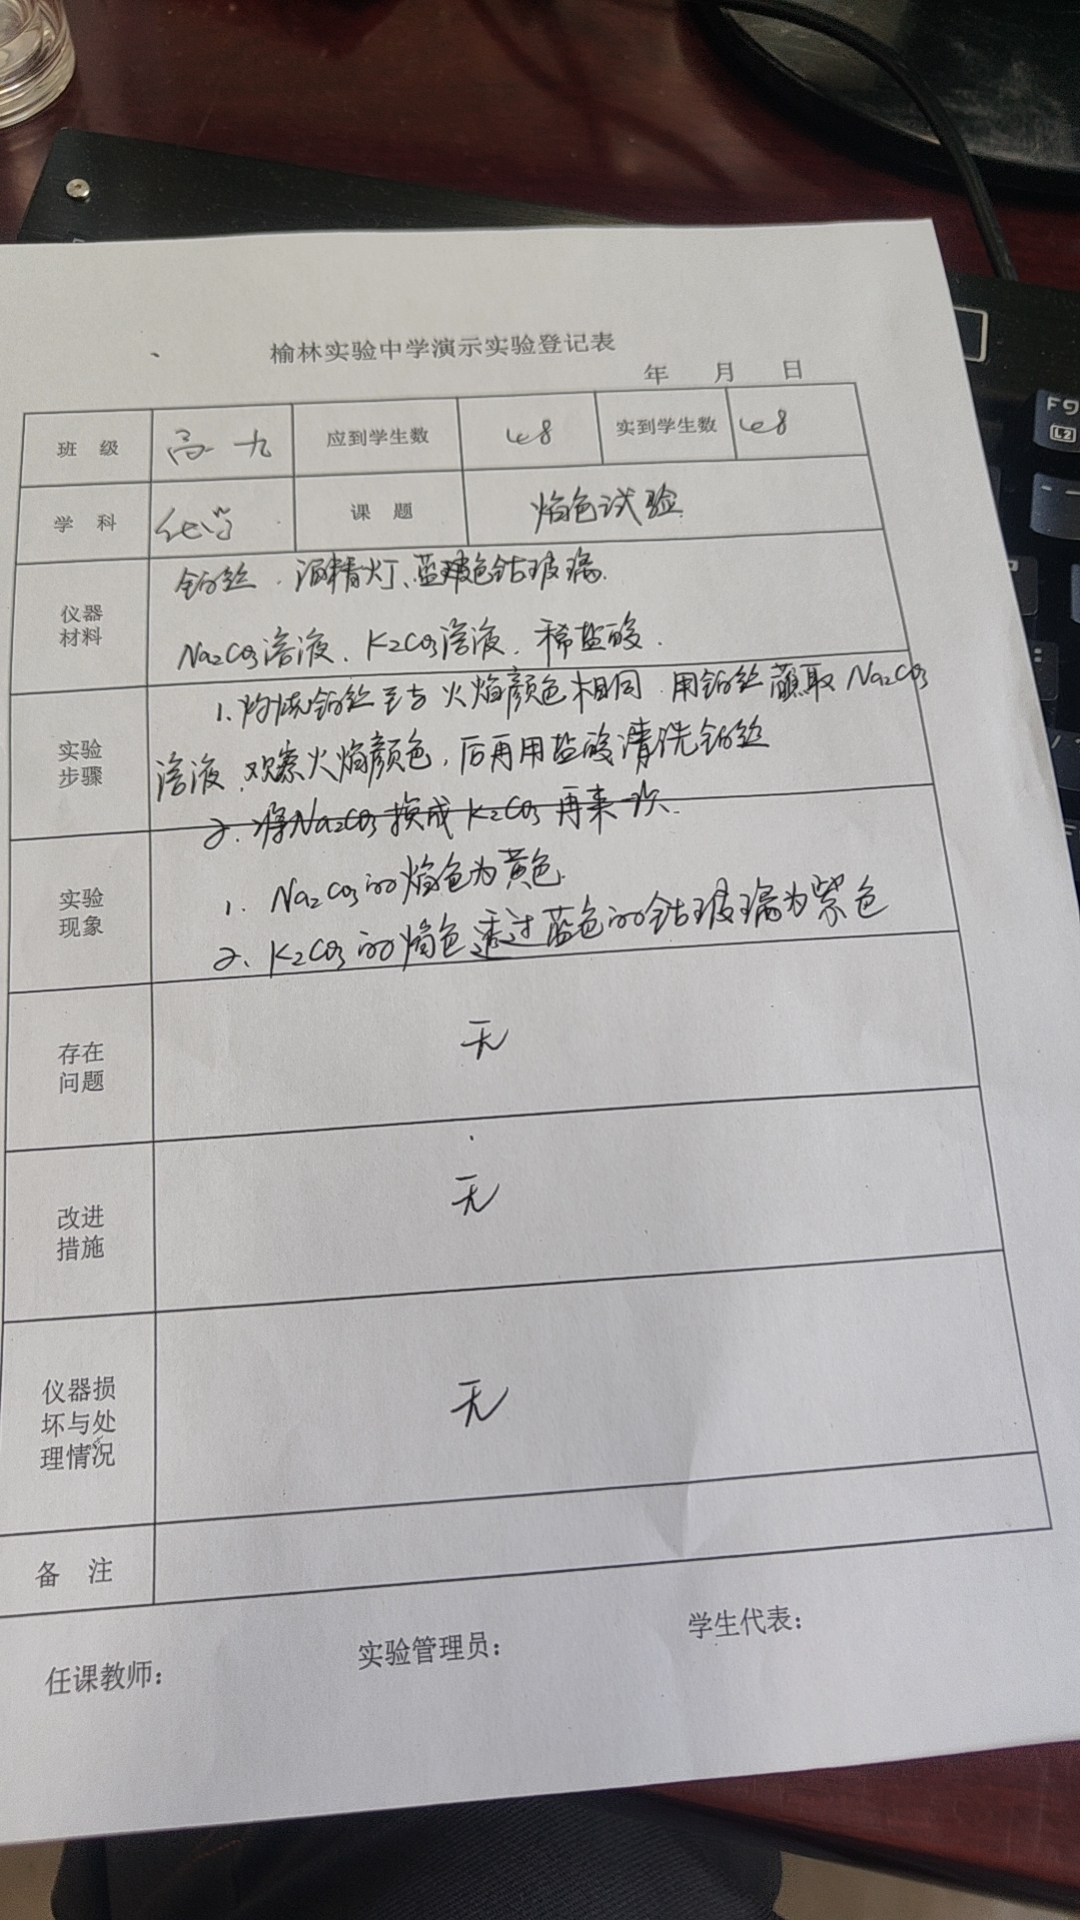 榆林实验中学演示实验登记表
年 月 日
班 级 高一九 应到学生数 48 实到学生数 48
学 科 化学 课 题 焰色试验
仪器材料
铂丝、酒精灯、蓝色钴玻璃.
Na2CO3溶液、K2CO3溶液、稀盐酸.
实验步骤
1.灼烧铂丝至与火焰颜色相同.用铂丝蘸取Na2CO3
溶液,观察火焰颜色,后再用盐酸清洗铂丝
2.将Na2CO3换成K2CO3再来一次.
实验现象
1. Na2CO3的焰色为黄色.
2. K2CO3的焰色透过蓝色的钴玻璃为紫色
存在问题
无
改进措施
无
仪器损坏与处理情况
无
备 注
任课教师: 实验管理员: 学生代表:
F9
L2